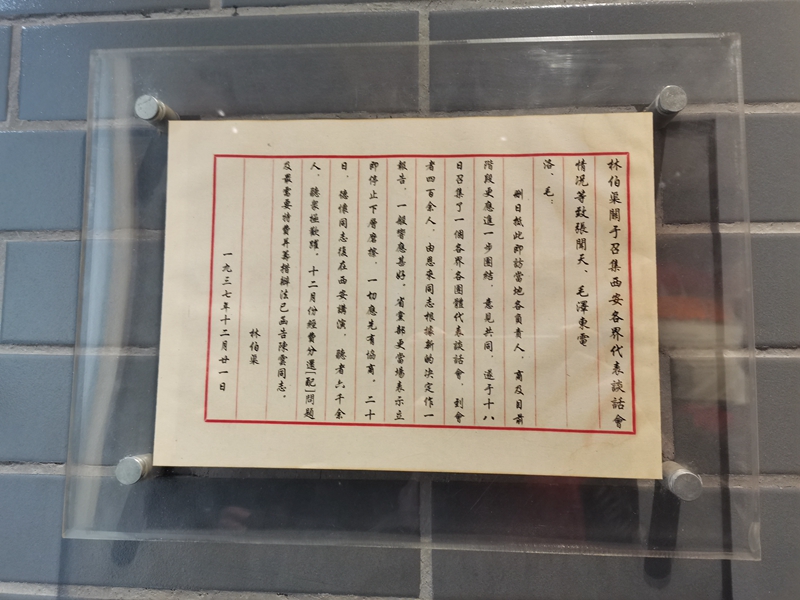 林伯渠關于召集西安各界代表談話會
情況等致張聞天、毛澤東電
洛、毛：
刪日抵此即訪當地各負責人，商及目前
階段更應進一步團結，意見共同，遂于十八
日召集了一個各界各團體代表談話會，到會
者四百余人，由恩來同志根據新的决定作一
報告，一般響應甚好，省黨部更當場表示立
即停止下層磨擦，一切應先有協商。二十
日，德懷同志復在西安講演，聽者六千余
人，聽衆極歡躍。十二月份經費分還[配]問題
及最需要特費并籌措辦法已函告陳雲同志。
林伯渠
一九三七年十二月廿一日